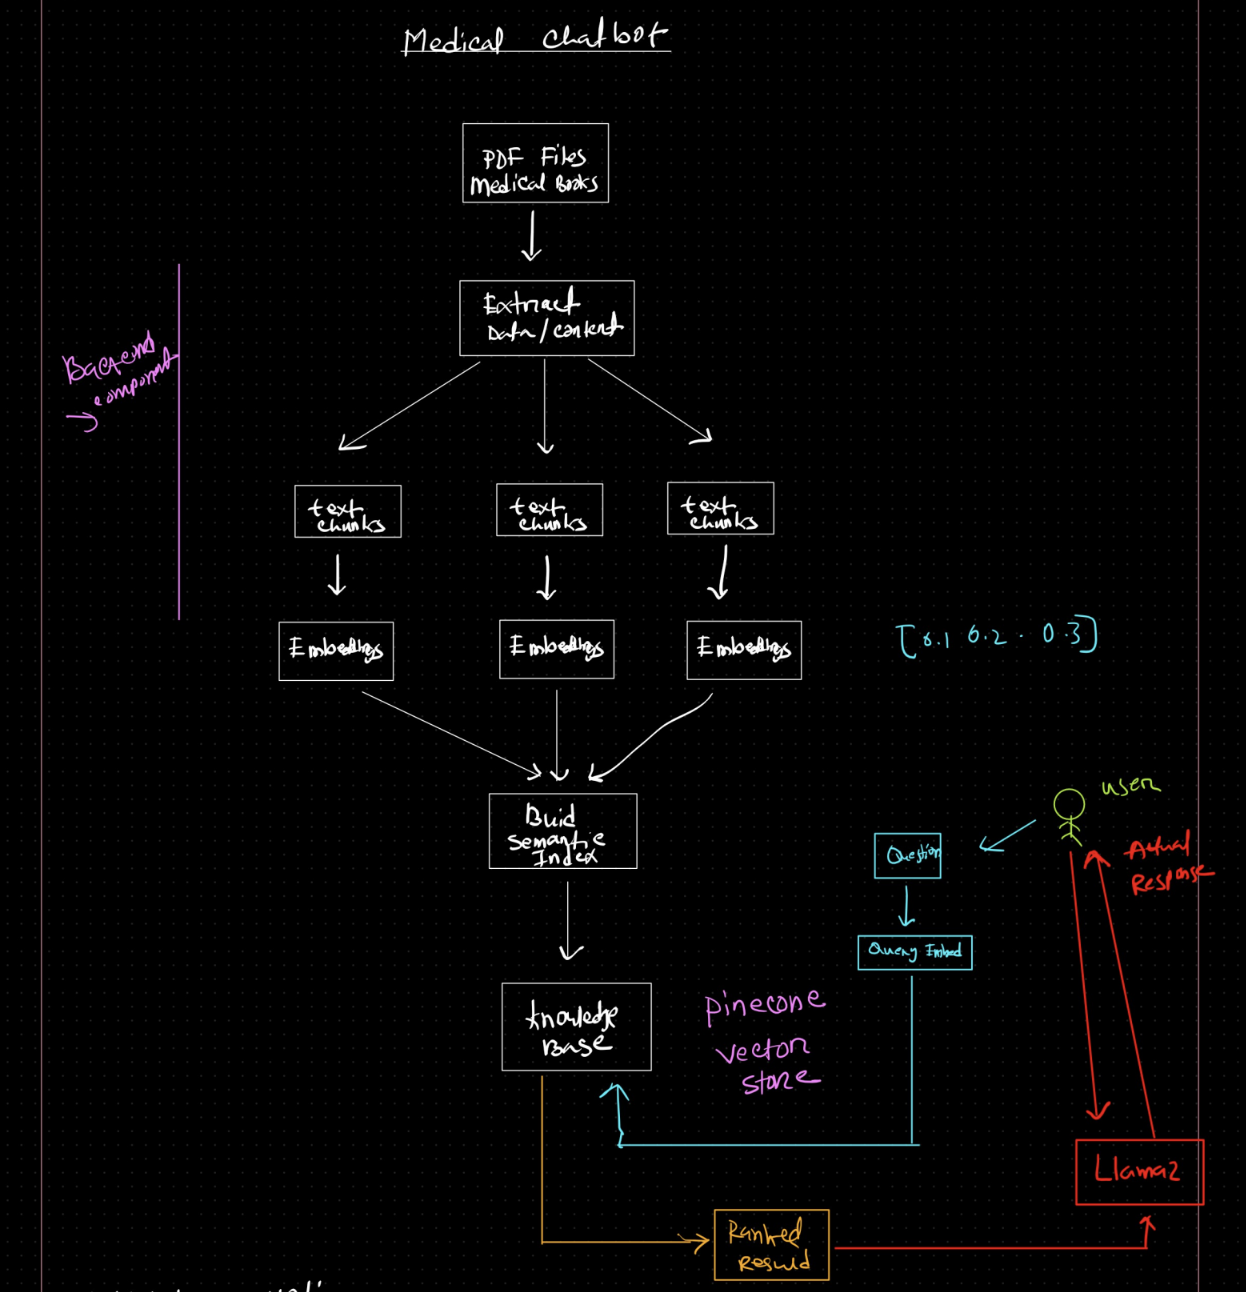 Medical chatbot
PDF Files
Medical Books
Extract
Data/content
Backend
component
text
chunks
text
chunks
text
chunks
Embeddings
Embeddings
Embeddings
[0.1 0.2 . 0.3]
user
Buid
Semantic
Index
Question
Actual
Response
Query Embed
Knowledge
Base
Pinecone
Vector
store
Llama2
Ranked